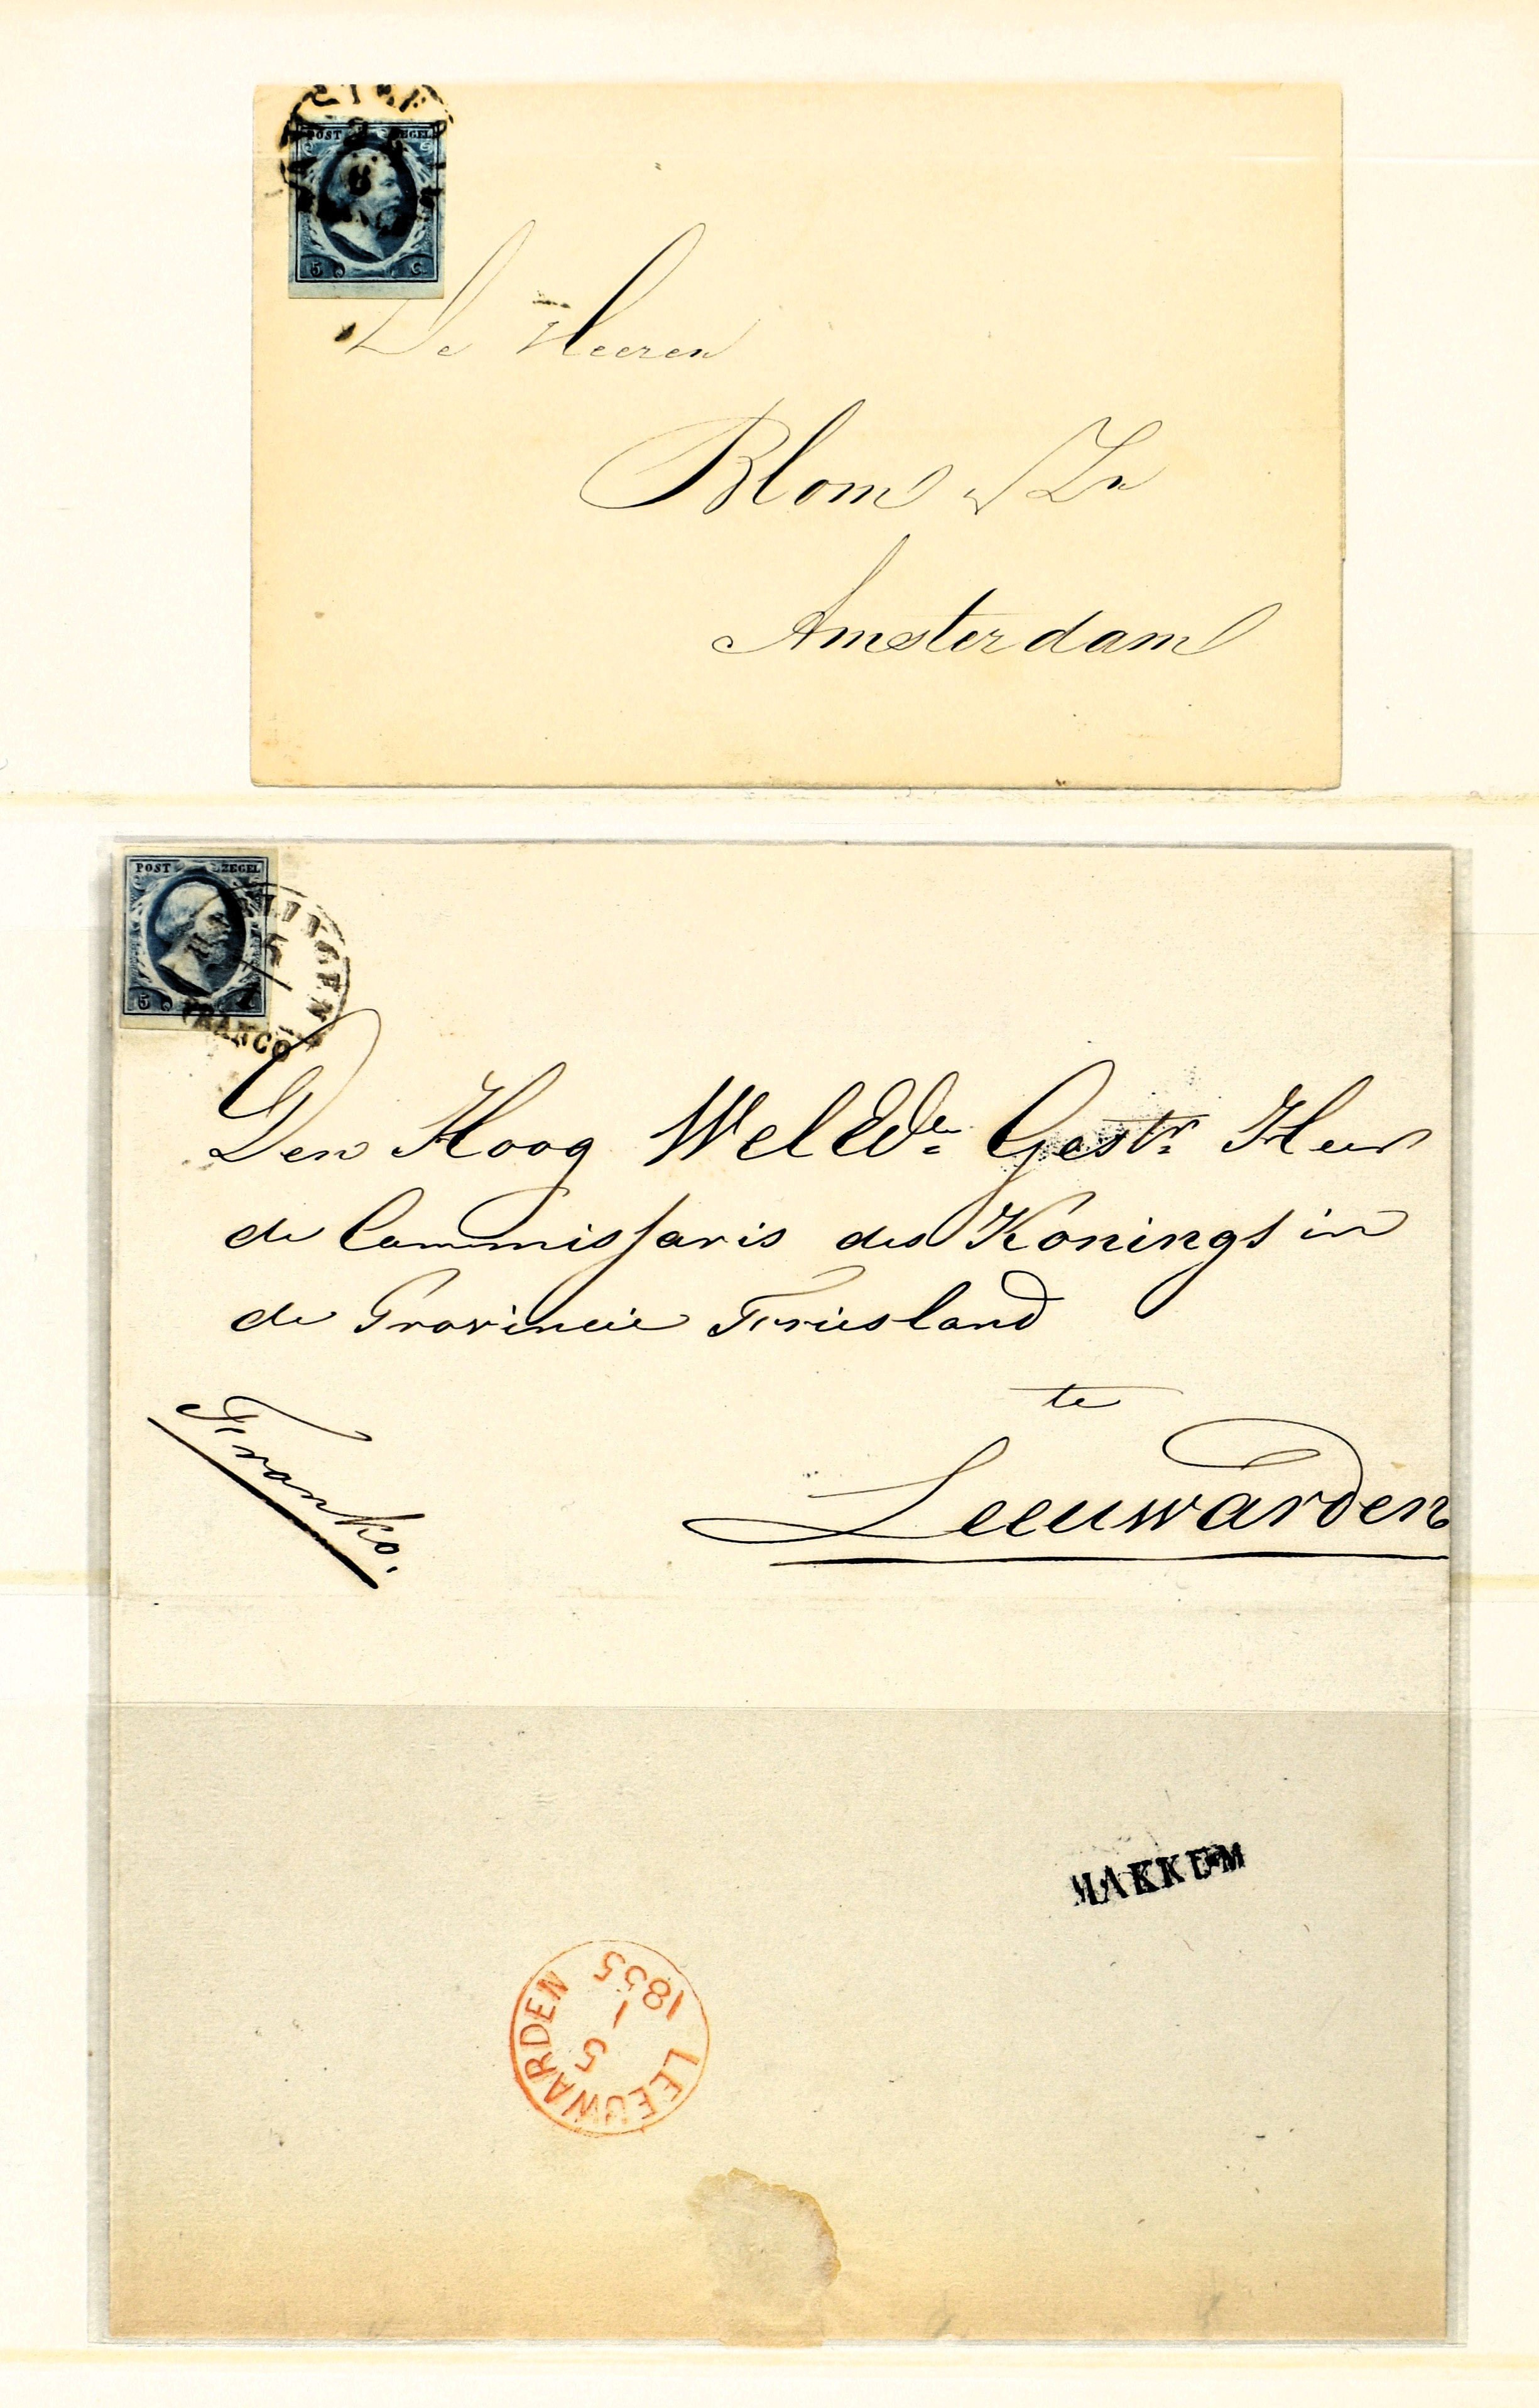 POST ZEGEL
5 C
De Heeren
Blom & Zn
Amsterdam
POST ZEGEL
5
HARLINGEN
5
1
FRANCO
Den Hoog Wel Ede. Gestr. Heer
de Commissaris des Konings in
de Provincie Friesland
te
Leeuwarden
Franko.
MAKKUM
LEEUWARDEN
5
1
1855